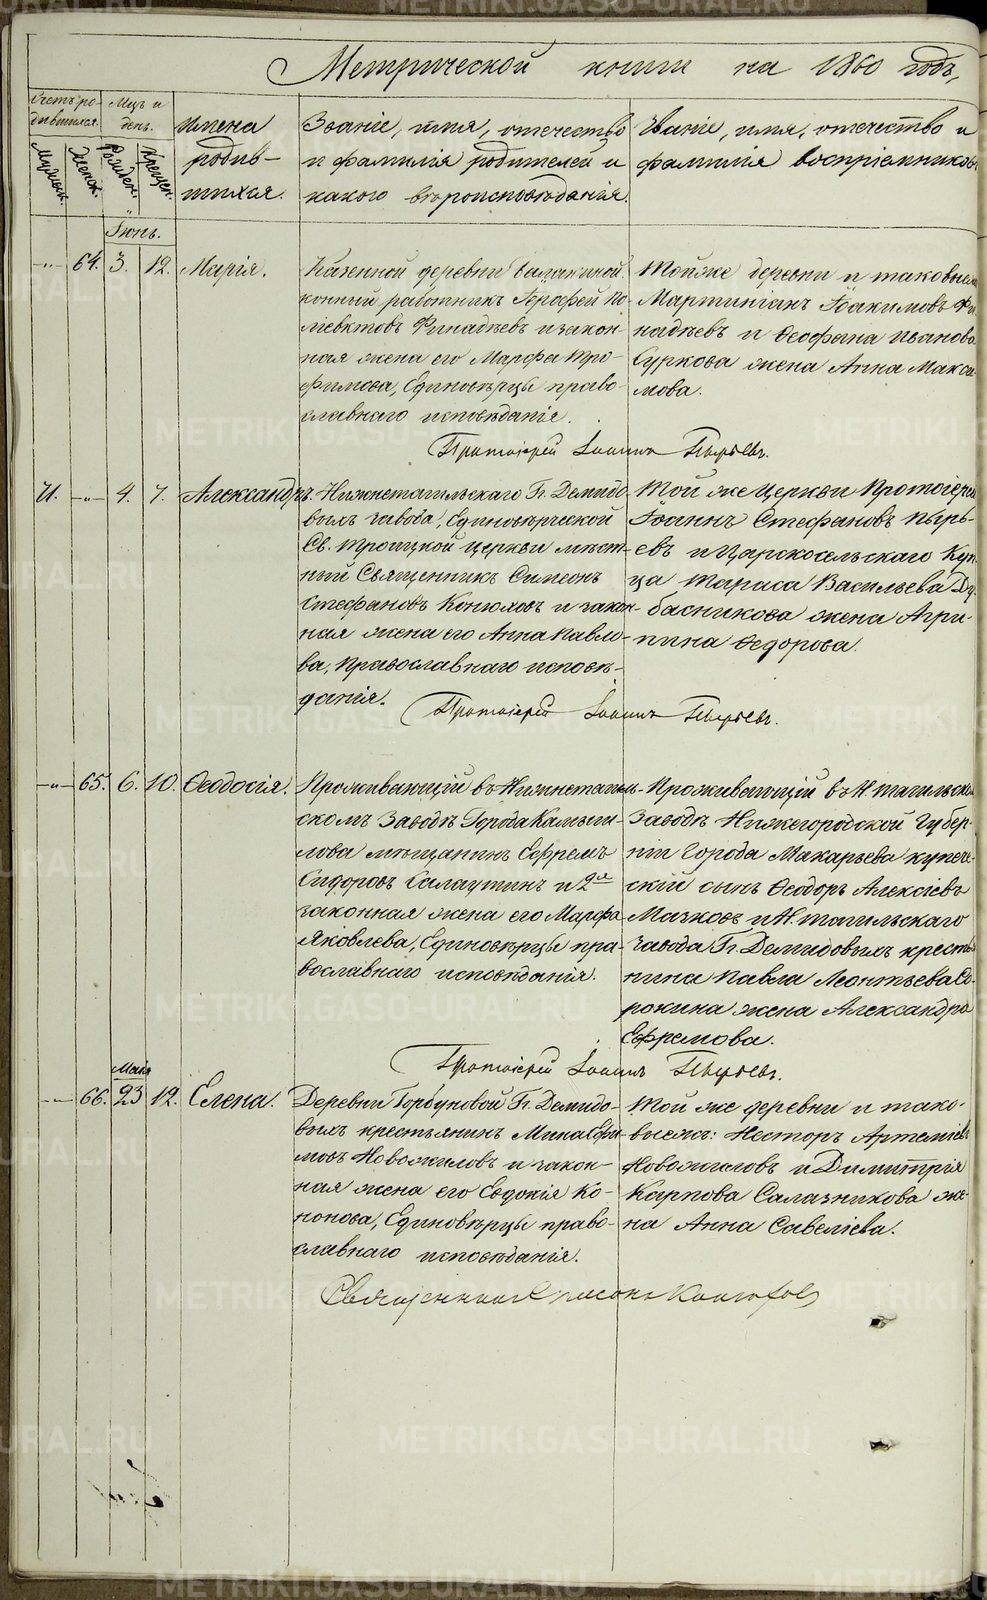 Метрической книги на 1860 годъ,
Счетъ ро-
дившихся.
Мужеск.
Женск.
Мцъ и
день.
Рожден.
Крещен.
Имена
родив-
шихся.
Званіе, имя, отечество
и фамилія родителей и
какого вѣроисповѣданія.
Званіе, имя, отечество и
фамилія воспріемниковъ
Іюнь.
64. 3. 12. Марія.
Казенной деревни
конный работникъ
Финадѣевъ и закон-
ная жена его Марфа Тро-
фимова, Единовѣрцы право-
славнаго исповѣданія.
Той же деревни и таковы
Мартиніанъ Іоакимовъ Фи-
надѣевъ и Ѳеофана Иванова
Суркова жена Анна Макси-
мова.
Протоіерей Іоаннъ Пырьевъ.
4. 7. Александръ.
Нижнетагильскаго Гг. Демидо-
выхъ завода, Единовѣрческой
Св. Троицкой церкви мѣст-
ный Священникъ Симеонъ
Стефановъ Конюховъ и закон-
ная жена его Анна Павло-
ва, Православнаго исповѣ-
данія.
Той же Церкви Протоіерей
Іоаннъ Стефановъ Пырь-
евъ и Царскосельскаго Куп-
ца Тараса Васильева Ду-
басникова жена Агри-
пина Ѳедорова.
Протоіерей Іоаннъ Пырьевъ.
65. 6. 10. Ѳеодосія.
Проживающій въ Нижнетагиль-
скомъ Заводѣ Города Камыш-
лова мѣщанинъ Ефремъ
Сидоровъ Салаутинъ и 2ая
законная жена его Марфа
Яковлева, Единовѣрцы пра-
вославнаго исповѣданія.
Проживающій въ Н. Тагильско
Заводѣ Нижегородской Губер-
ніи Города Макарьева купече-
скій сынъ Ѳеодоръ Алексіевъ
Мазковъ и Н. Тагильскаго
завода Гг. Демидовыхъ крестья
нина Павла Леонтьева Со-
рокина жена Александра
Ефремова.
Протоіерей Іоаннъ Пырьевъ.
Майя
66. 23 12. Елена.
Деревни Горбуновой Гг. Демидо-
выхъ крестьянинъ Мина Ефи-
мовъ Новожиловъ и закон-
ная жена его Евдокія Ко-
нонова, Единовѣрцы право-
славнаго исповѣданія.
Той же деревни и тако-
выежъ: Несторъ Артеміевъ
Новожиловъ и Димитрія
Карпова Салазникова же-
на Анна Савеліева.
Священникъ Симеонъ Конюховъ
METRIKI.GASO-URAL.RU